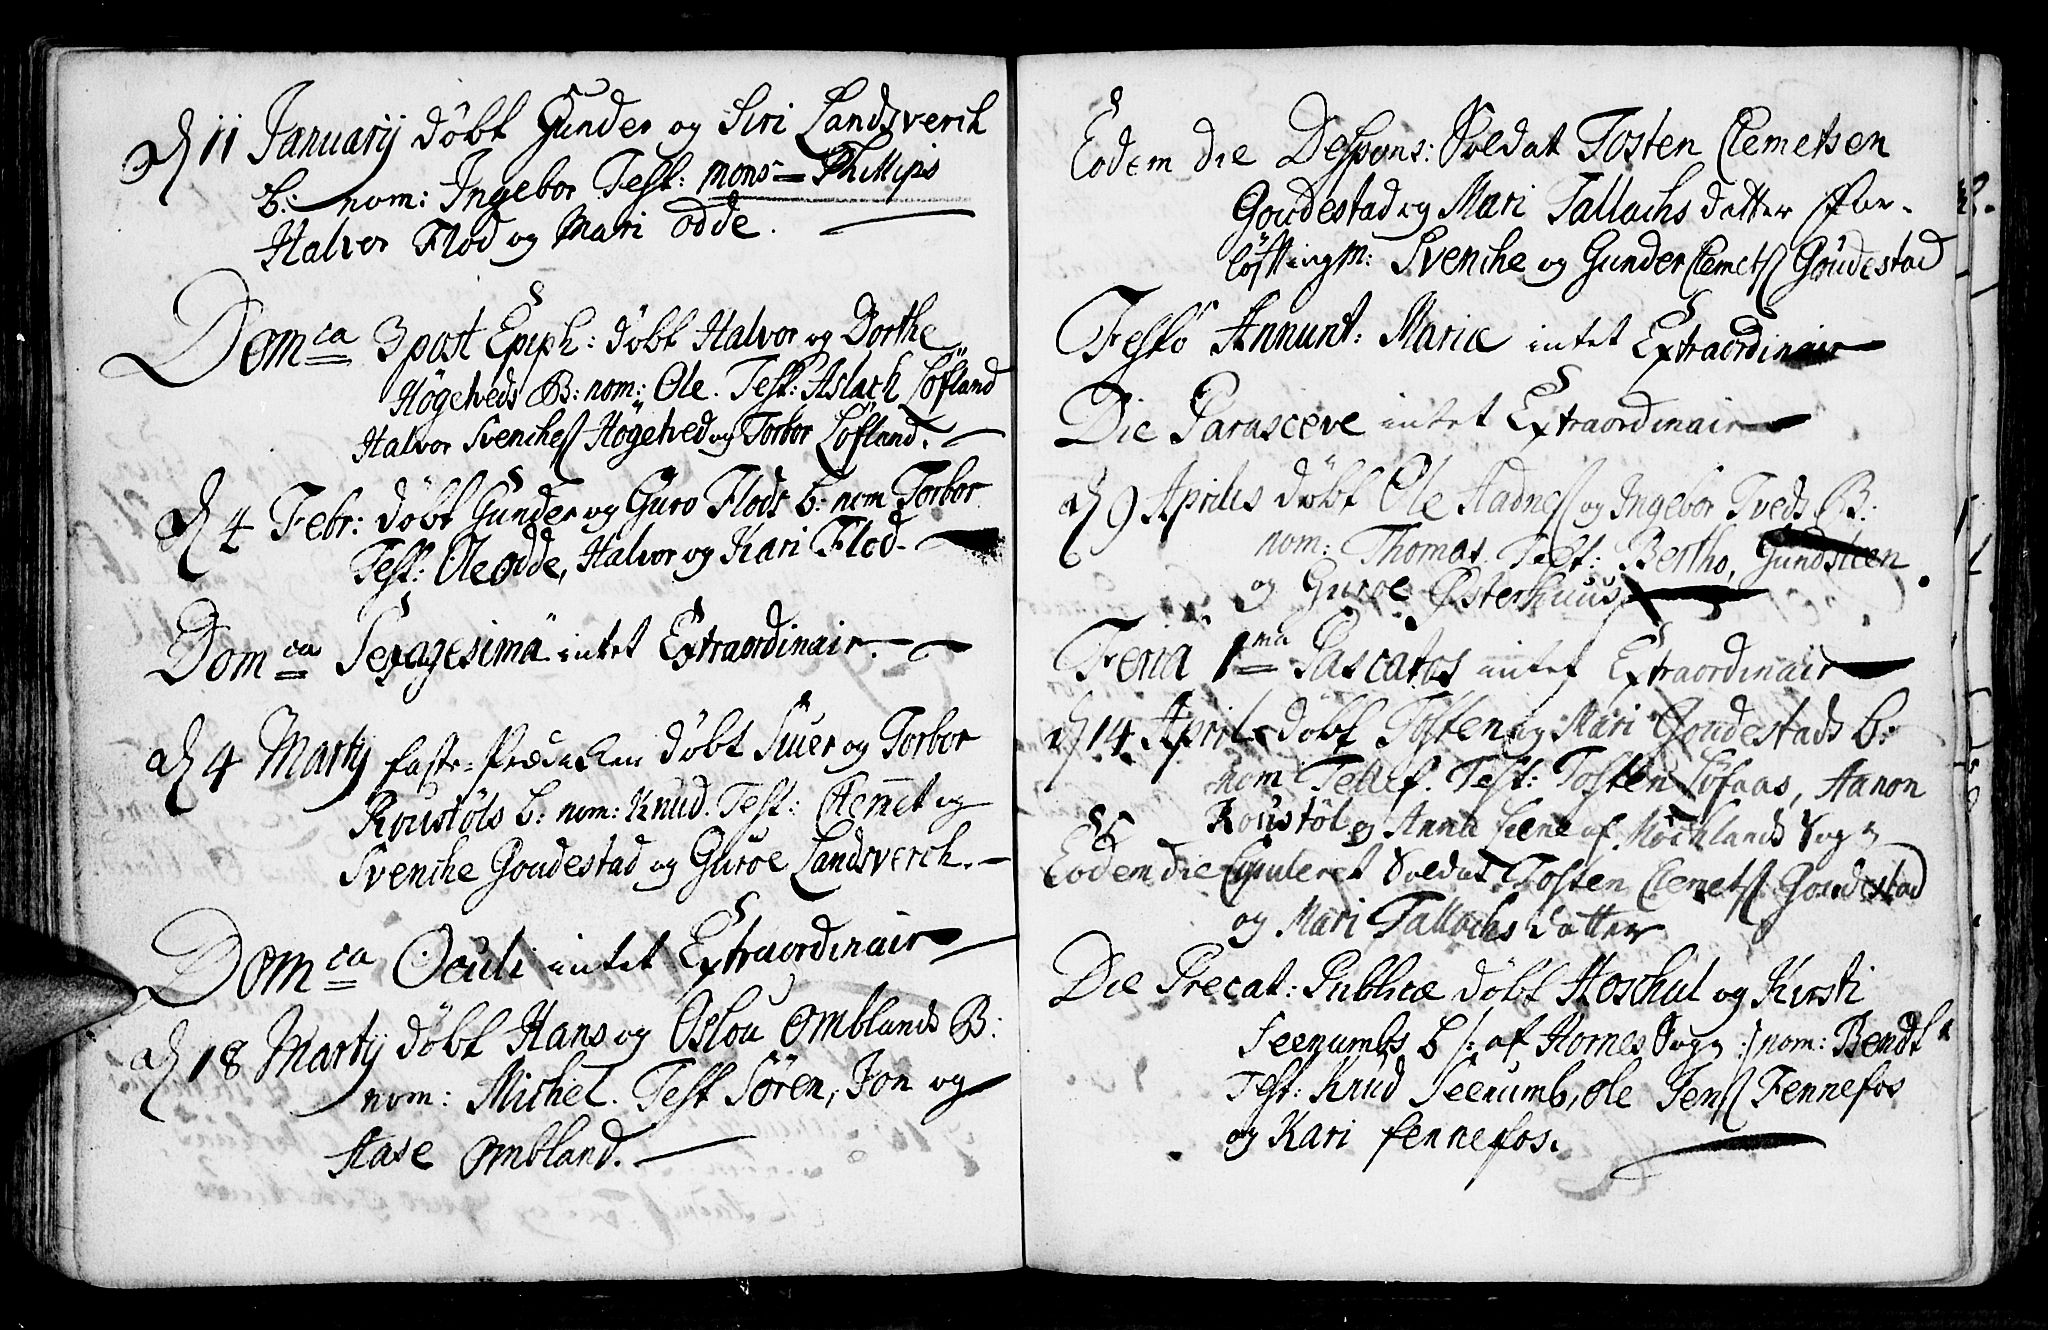 d 11 Januarij döbt Gunder og Siri Landsverch
b: nom: Ingebor Test: mons= Phillips
Halvor Flod og Mari odde.
Domca 3 post Epiph: döbt Halvor og Dorthe
Högetveds B: nom: Ole. Test: Aslach Löfland
Halvor Svenches Högetved og Torbor Löfland.
d 4 Febr: döbt Gunder og Guro Flods b: nom Torbor
Test: Ole odde, Halvor og Kari Flod.
Domca Sexagesima intet Extraordinair.
d 4 Martij faste-Prædeken döbt Siuer og Torbor
Roustöls b: nom: Knud. Test: Clemet og
Svenche Goudestad og Guroe Landsverch.
Domca Oculi intet Extraordinair
d 18 Martij döbt Hans og Oslou omblands B:
nom: Michel. Test Sören, Jon og
Aase ombland.
Eodem die Despons: Soldat Tosten Clemetsen
Goudestad og Mari Tallachs datter For-
löftingm: Svenche og Gunder Clemets Goudestad
Festo Annunt: Mariæ intet Extraordinair
Die Parasceve intet Extraordinair
d 9 Aprilis döbt Ole Aadnes og Ingebor Tveds B:
nom: Thomas. Test: Bertho, Gundsteen
og Guroe Østerhuus
Feria 1ma Pascatos intet Extraordinair
d 14 April döbt Tosten og Mari Goudestads b:
nom Tellef. Test: Tosten Löfaas, Aanon
Roustöl og Anna af Mochlands Sogn
Eodem die Copuleret Soldat Tosten Clemets Goudestad
og Mari Tallachs datter
Die Precat: Publicæ döbt Hoschul og Kirsti
Seenumbs b /: af Hornes Sogn :/ nom: Bendt
Test: Knud Seenumb, ole Jens Fennefos
og Kari fennefos.